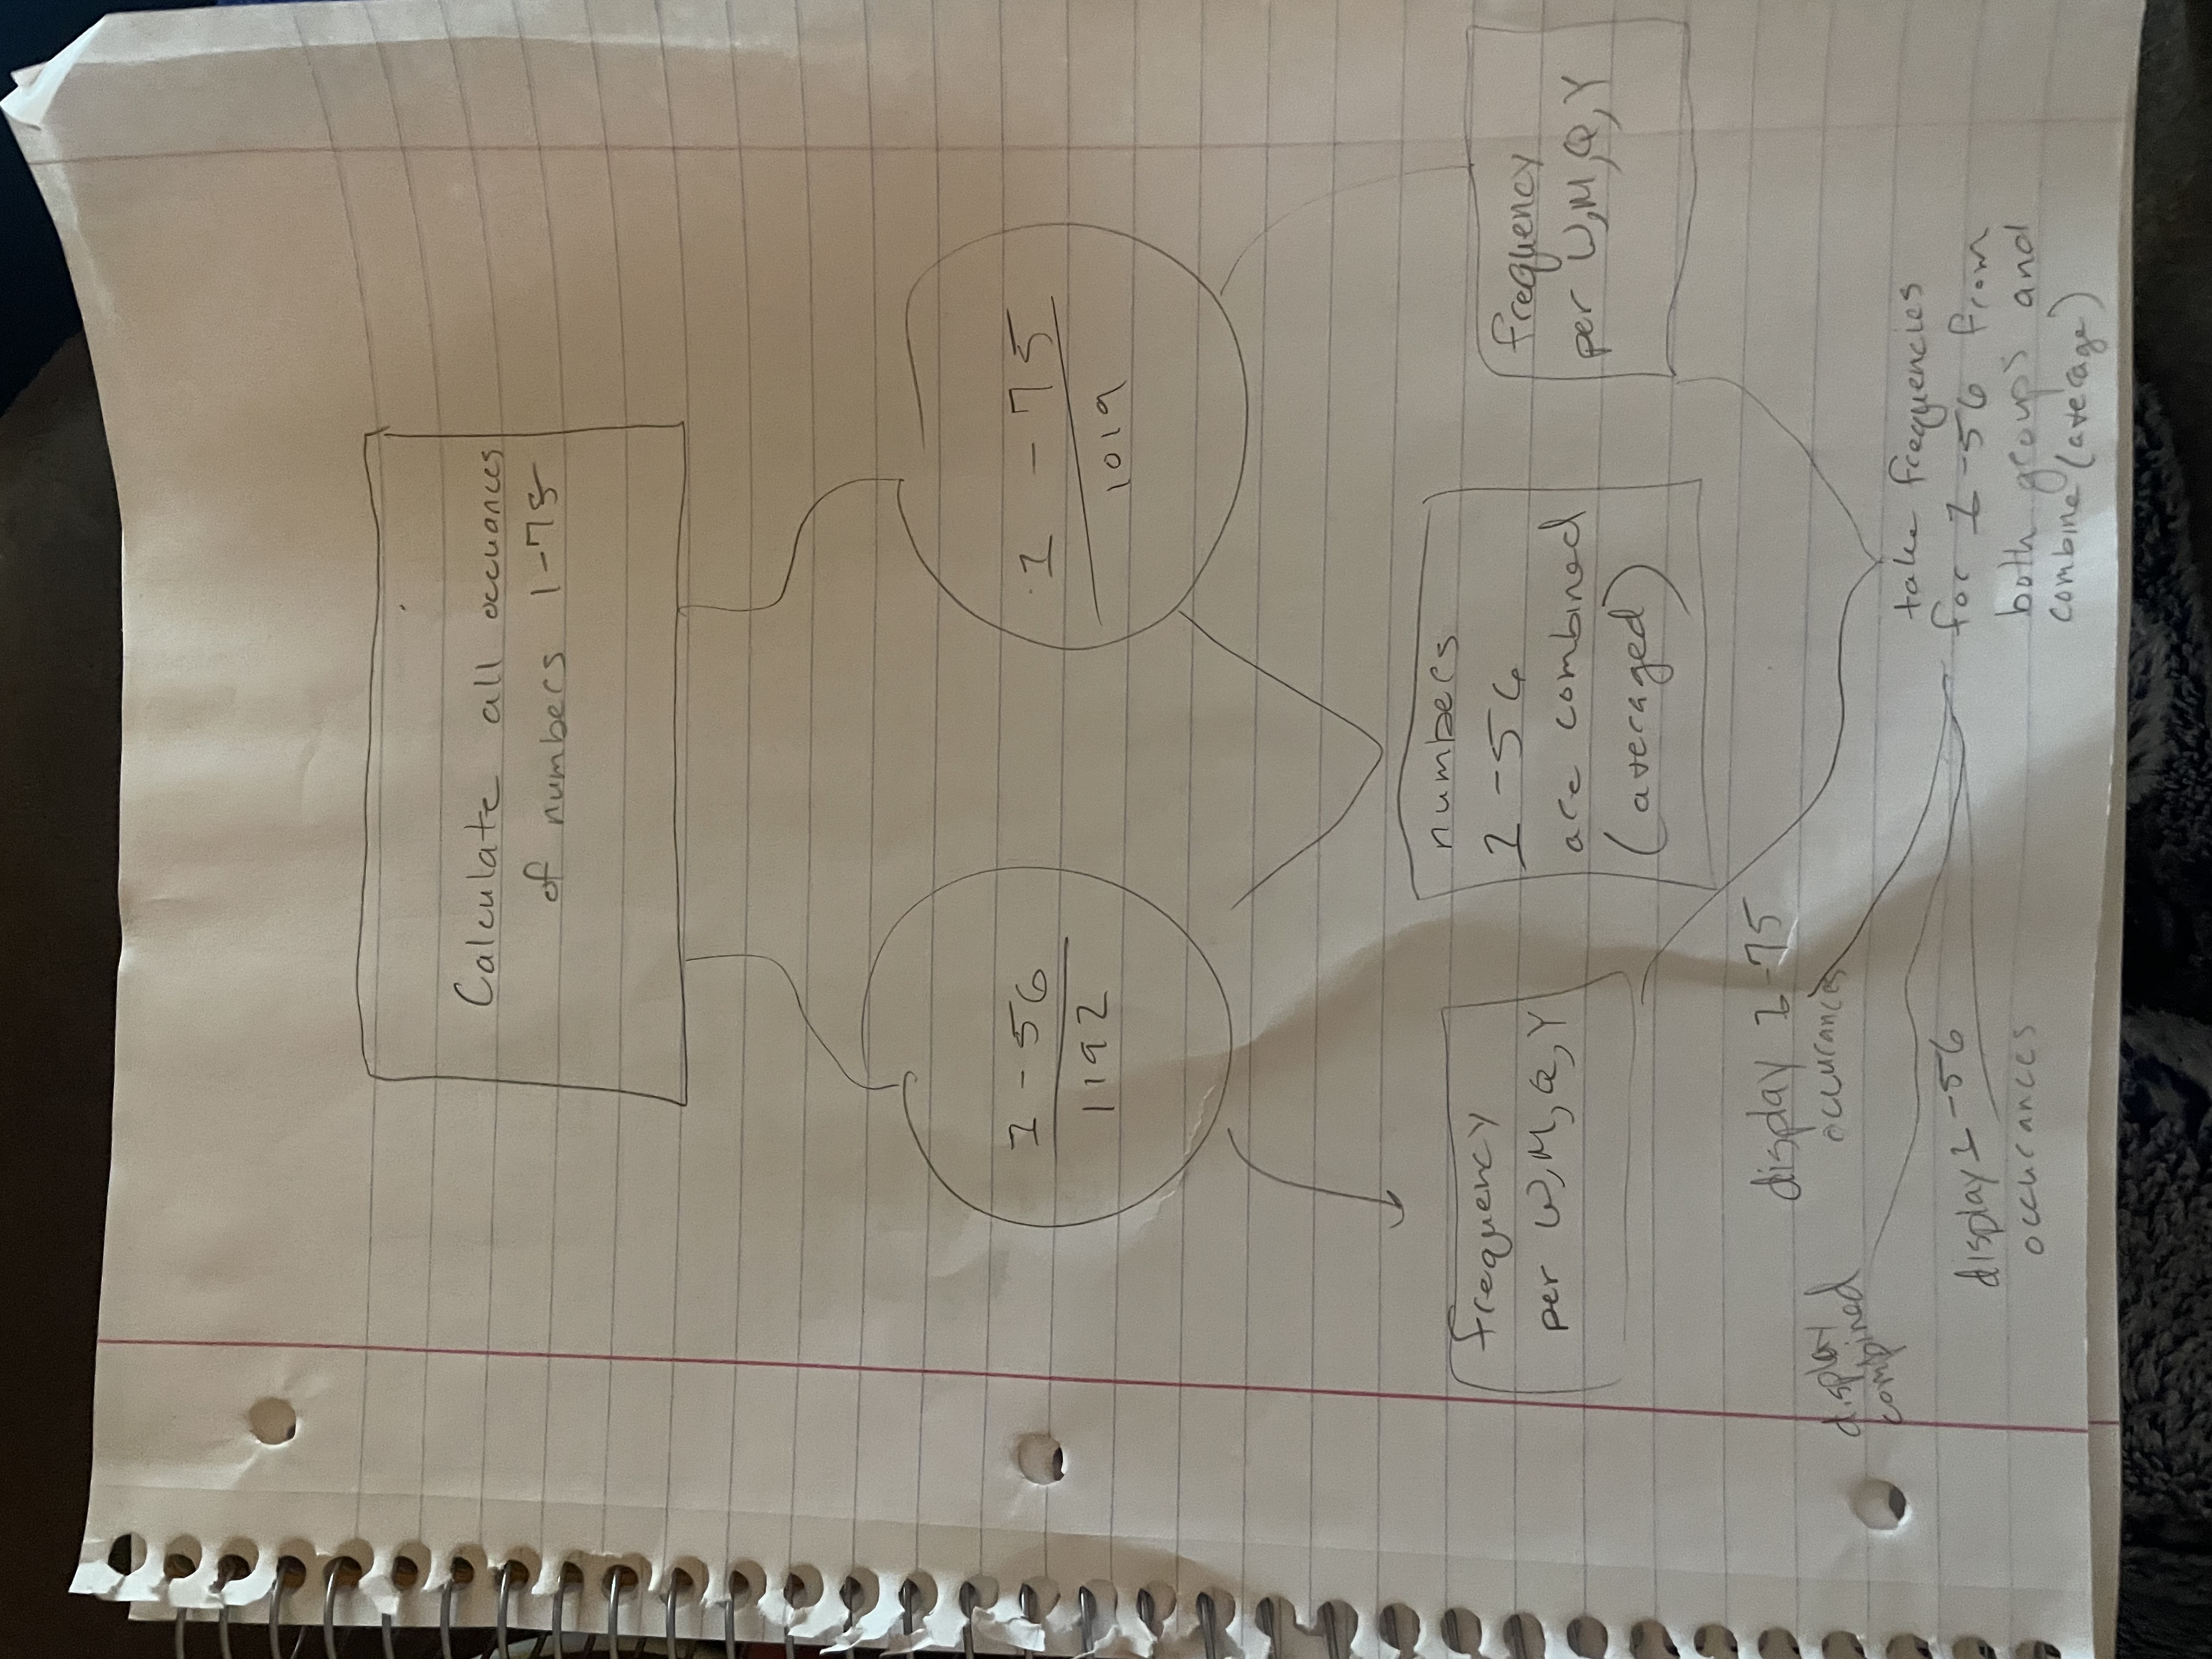 Calculate all occuances
of numbers 1-75
1 - 56
1192
1 - 75
1019
frequency
per W, M, Q, Y
numbers
1 - 56
are combined
(averaged)
frequency
per W, M, Q, Y
display 1-75
occurances
display
combined
display 1-56
occurances
take frequencies
for 1-56 from
both groups and
combine (average)